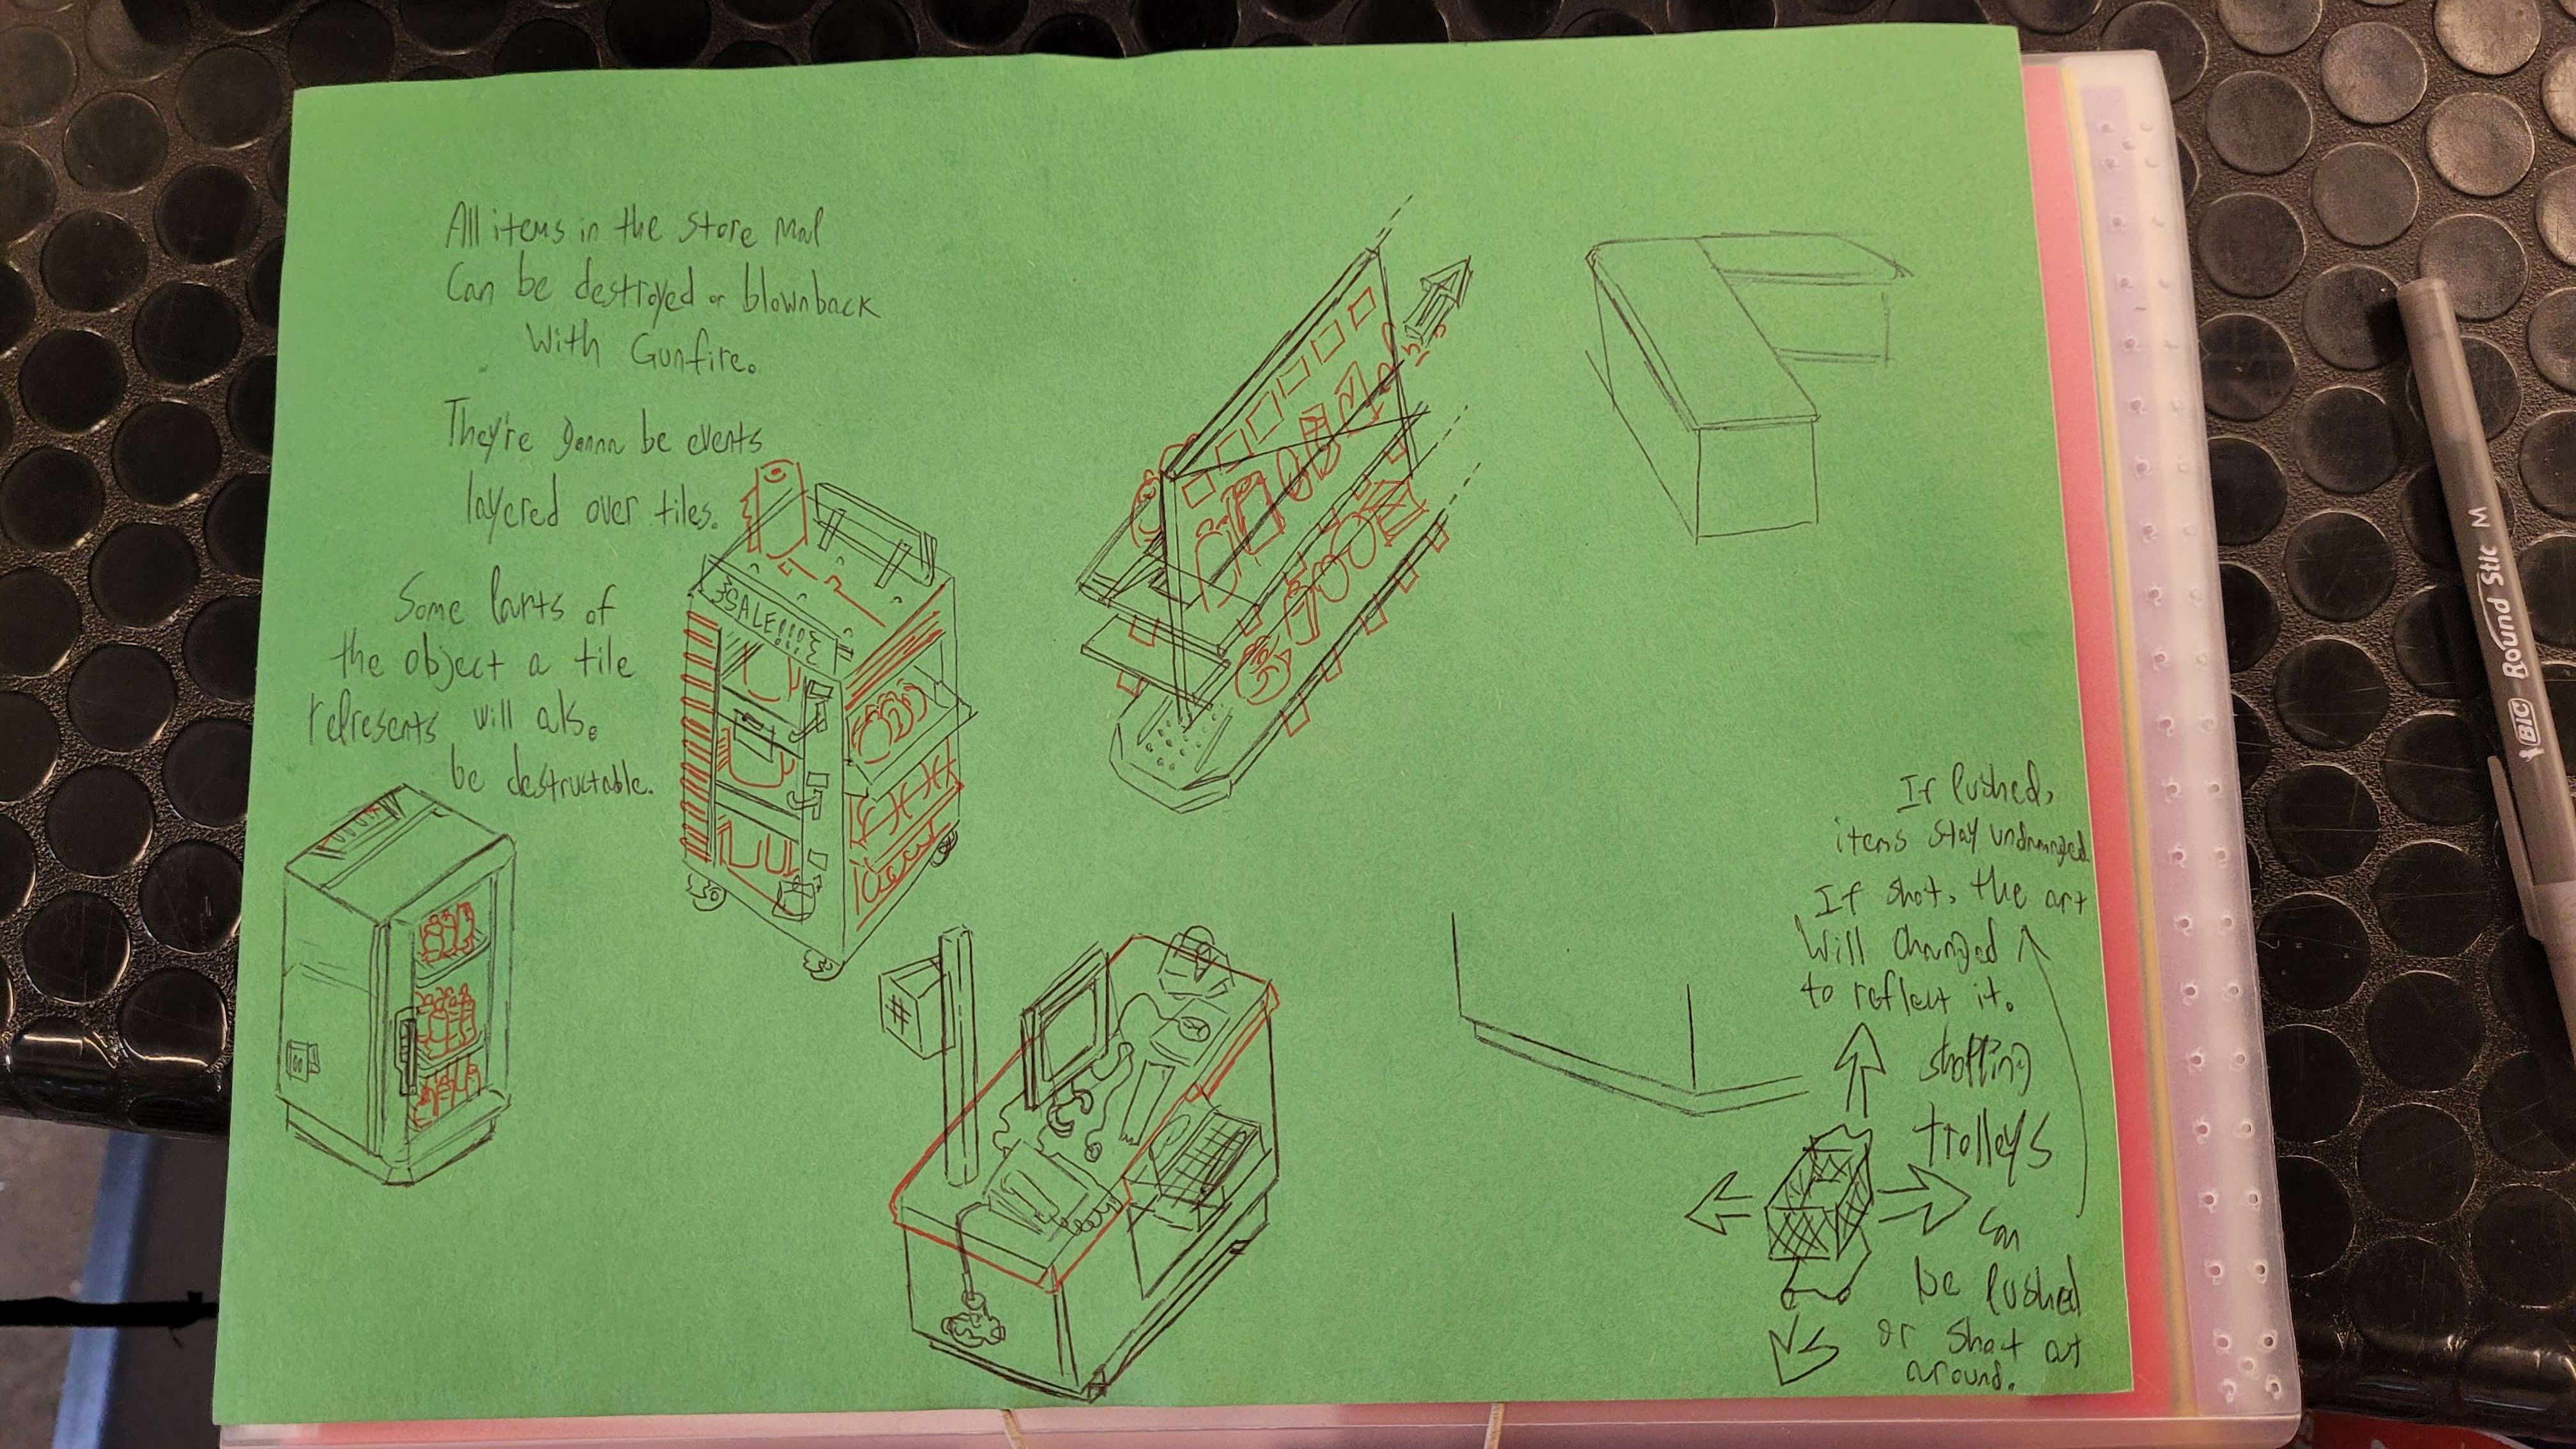 All items in the store map
Can be destroyed or blownback
With Gunfire.
They're gonna be events
layered over tiles.
Some parts of
the object a tile
represents will also
be destructable.
SALE!!!
#
If pushed,
items stay undamaged
If shot, the art
Will changed
to reflect it.
shopping
trolleys
can
be pushed
or shoot at
around.
BIC Round Stic M